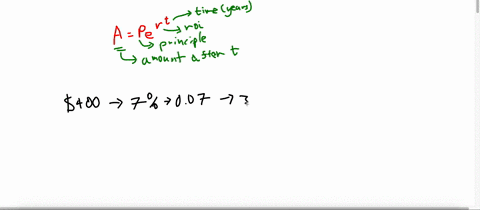 A = Pe^rt → time (years)
→ roi
→ principle
→ amount after t
$400 → 7% → 0.07 →